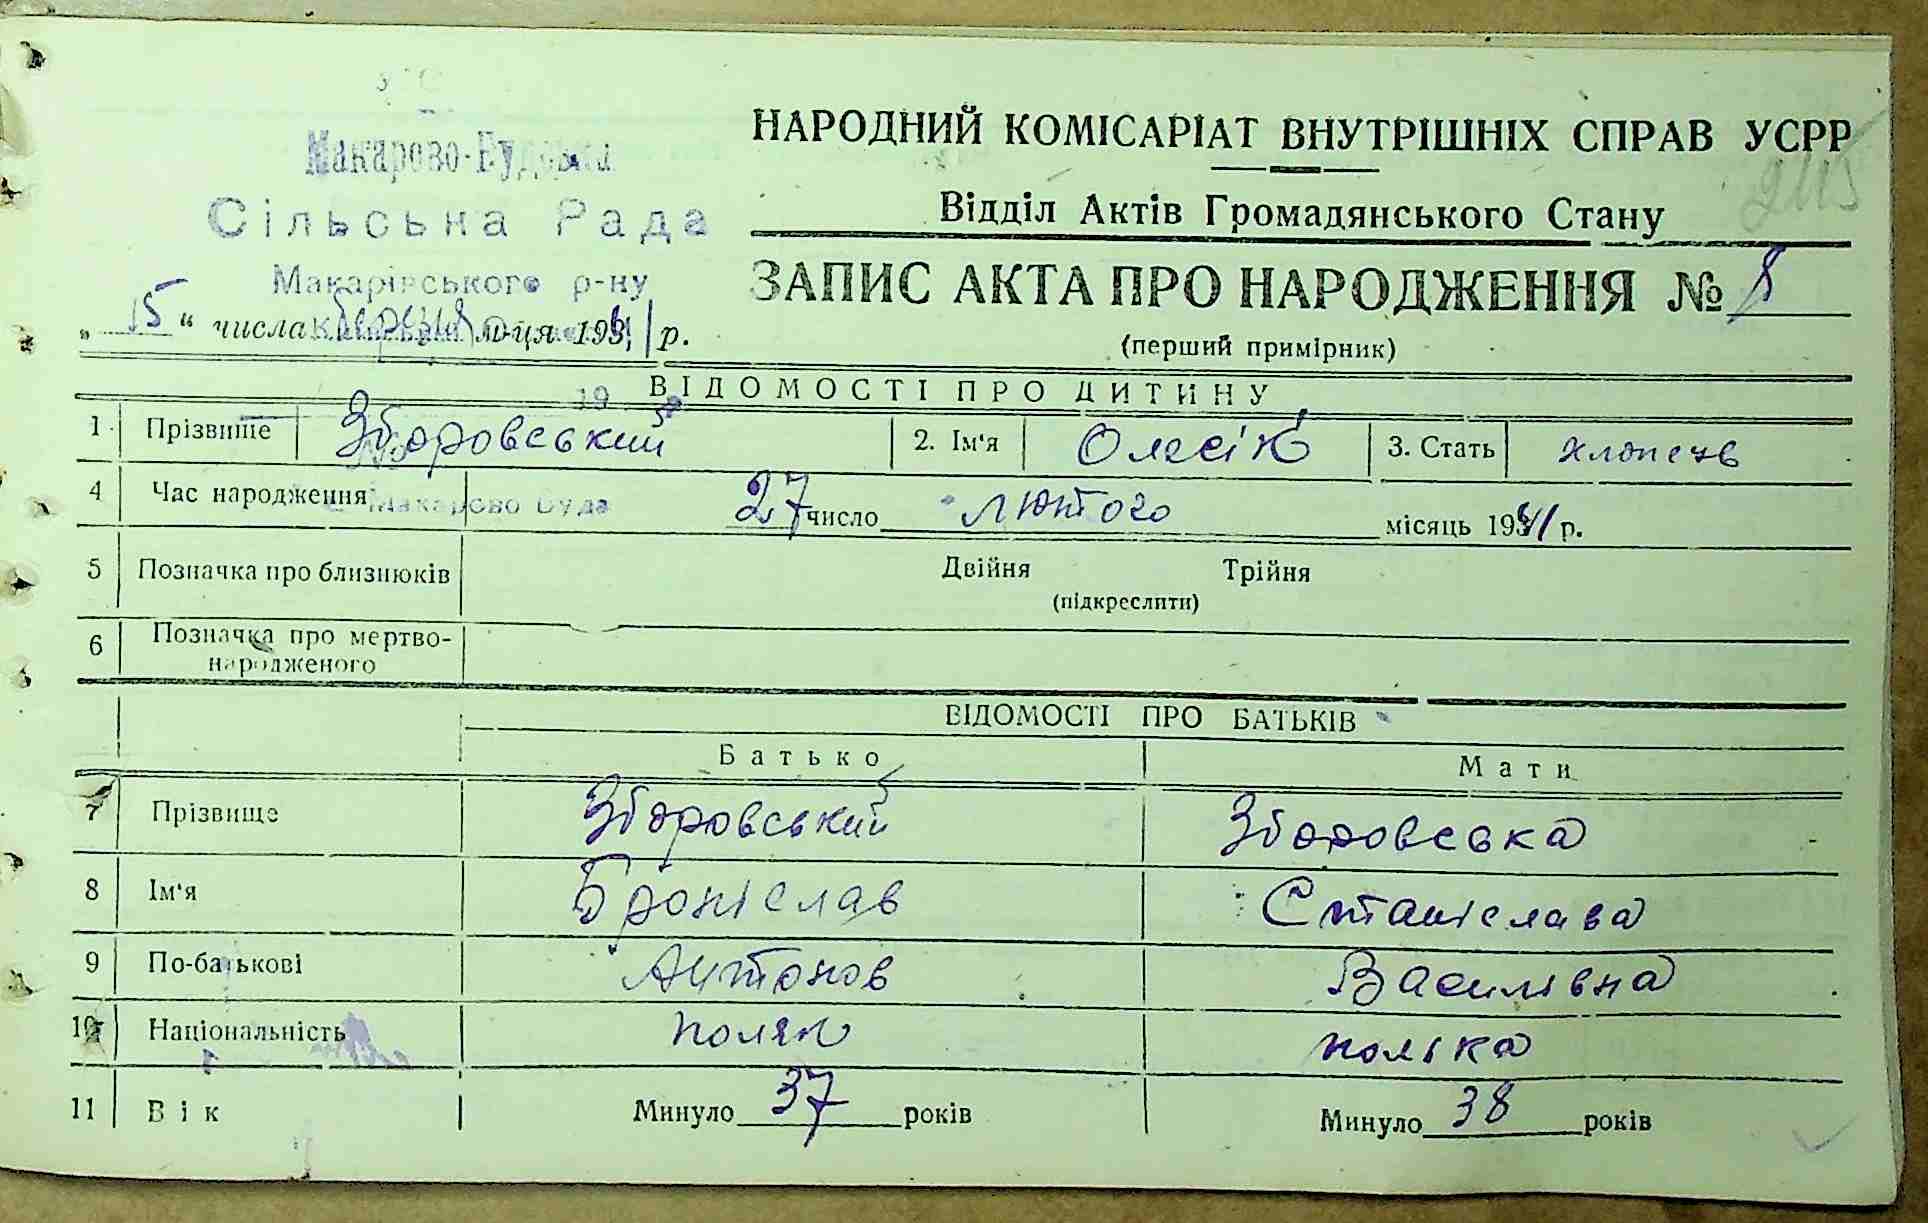 НАРОДНИЙ КОМІСАРІАТ ВНУТРІШНІХ СПРАВ УСРР
Макарово-Будська
Сільська Рада
Макарівського р-ну
Відділ Актів Громадянського Стану
ЗАПИС АКТА ПРО НАРОДЖЕННЯ № 8
(перший примірник)
„ 15 “ числа березня м-ця 1941 р.
19
ВІДОМОСТІ ПРО ДИТИНУ
1 Прізвище Зборовський 2. Ім'я 3. Стать хлопець
4 Час народження Макарово Буда 27 число лютого місяць 1941 р.
5 Позначка про близнюків Двійня Трійня
(підкреслити)
6 Позначка про мертво-
народженого
ВІДОМОСТІ ПРО БАТЬКІВ
Батько Мати
7 Прізвище Зборовський Зборовська
8 Ім'я Броніслав Станіслава
9 По-батькові Антонов Василівна
10 Національність поляк полька
11 Вік Минуло 37 років Минуло 38 років